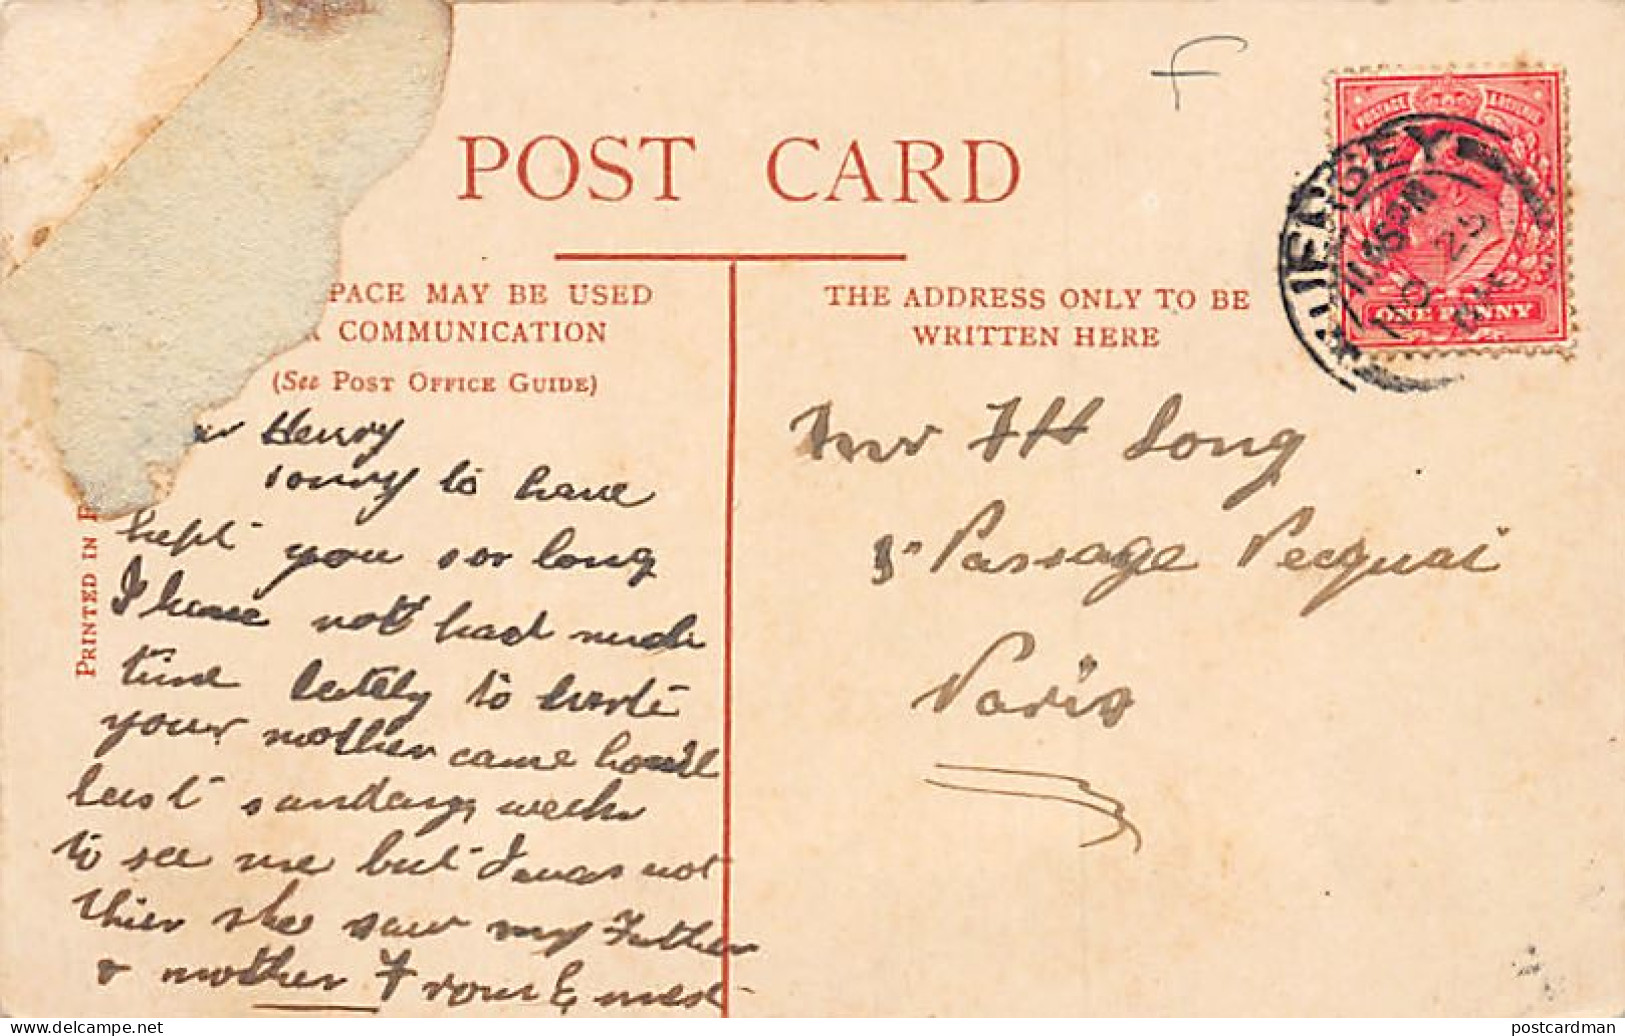 F
POST CARD
PACE MAY BE USED
R COMMUNICATION
(See POST OFFICE GUIDE)
THE ADDRESS ONLY TO BE
WRITTEN HERE
POSTAGE & REVENUE
ONE PENNY
JERSEY
11.45PM
NO 25
PRINTED IN
Henry
sorry to have
kept you so long
I have not had much
time lately to write
your mother came
last sunday week
to see me but I was not
thier she saw my Father
& mother From Ernest
Mr FH Long
Passage Pecquai
Paris
postcardman